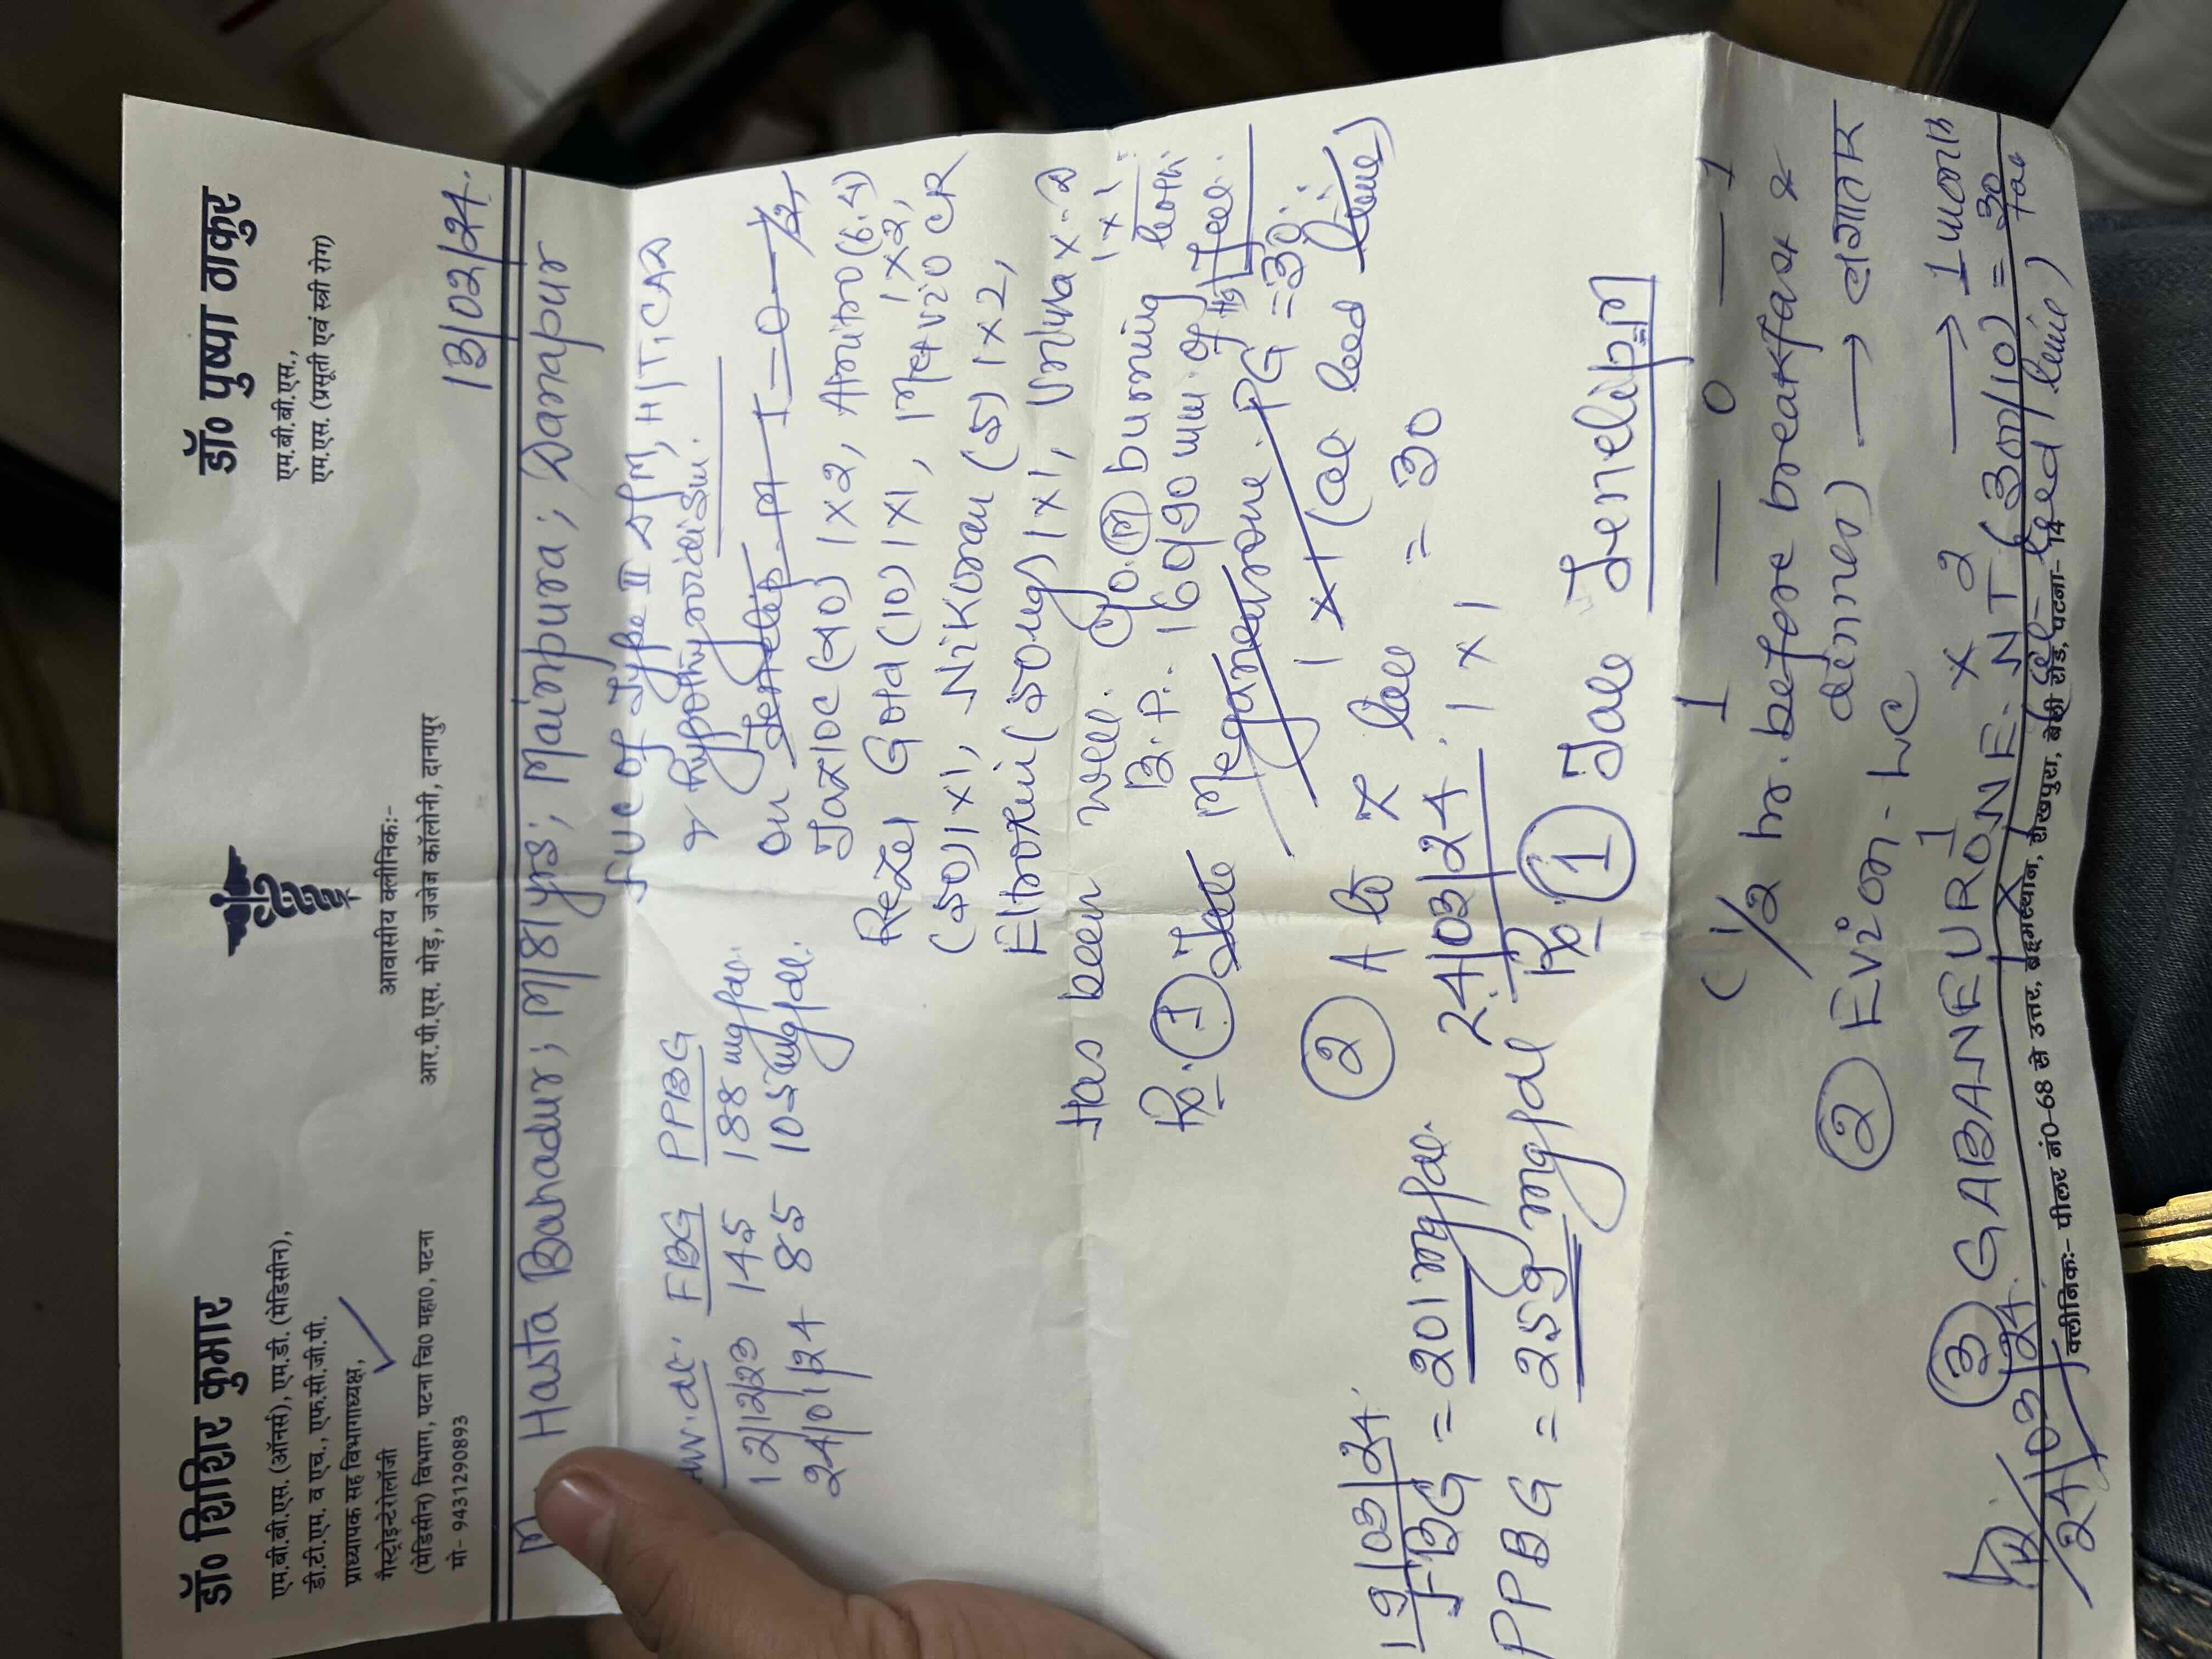 डॉ० शिशिर कुमार
एम.बी.बी.एस. (ऑनर्स), एम.डी. (मेडिसीन),
डी.टी.एम. व एच., एफ.सी.जी.पी.
प्राध्यापक सह विभागाध्यक्ष,
गैस्ट्रोइन्टेरोलॉजी
(मेडिसीन) विभाग, पटना चि० महा०, पटना
मो- 9431290893
आवासीय क्लीनिक:-
आर.पी.एस. मोड़, जजेज कॉलोनी, दानापुर
डॉ० पुष्पा ठाकुर
एम.बी.बी.एस.,
एम.एस. (प्रसूती एवं स्त्री रोग)
13/02/24.
Hasta Bahadur; M/81yrs; Mainpura; Danapur
FUC of Type II DM, H/T, CAD
& hypothyroidism.
FBG PPBG
12/12/23 145 188 mg/dl.
24/01/24 85 105 mg/dl.
On Jenelip-M 1-0-1/2,
(40) 1x2, (6.4) 1x2,
Gold (10) 1x1, CR
(50) 1x1, Nikoran (5) 1x2,
Eltroxin (50mg) 1x1, -D
1x1
Has been well. C/o. burning both feet.
B.P. 160/90 mm of Hg
Rx. 1 Tab Meganeurone. PG = 30
1 x 1 (at bed time)
2 A to Z tab = 30
1 x 1
19/03/24.
FBG = 201 mg/dl.
PPBG = 259 mg/dl
24/03/24.
Rx 1 Tab Jenelip M
1 — 0 — 1
(1/2 hr. before breakfast &
dinner) → लगातार
2 Evion-LC
1 x 2 → 1 month
3 GABANEURONE.NT (300/10) = 30 Tab
1 x 1 bed time)
24/03/24.
क्लीनिक:- पीलर नं०-68 से उत्तर, ब्रह्मस्थान, शेखपुरा, बेली रोड, पटना-14